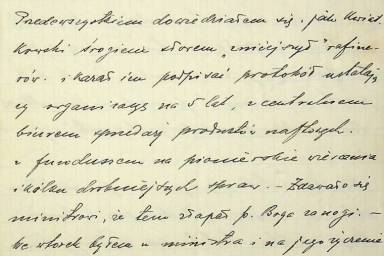 Przedewszystkiem dowiedziałem się, jak Kwiat-
kowski srogiem słowem "zmiejszył" rafine-
rów. i kazał im podpisać protokół ustalają-
cy organizację na 5 lat, z centralnem
biurem sprzedaży produktów naftowych.
z funduszem na pionierskie wiercenia
i kilku drobniejszych spraw. – Zdawało się
ministrowi, że tem złapał p. Boga za nogi. –
We wtorek byłem u ministra i na jego życzenie